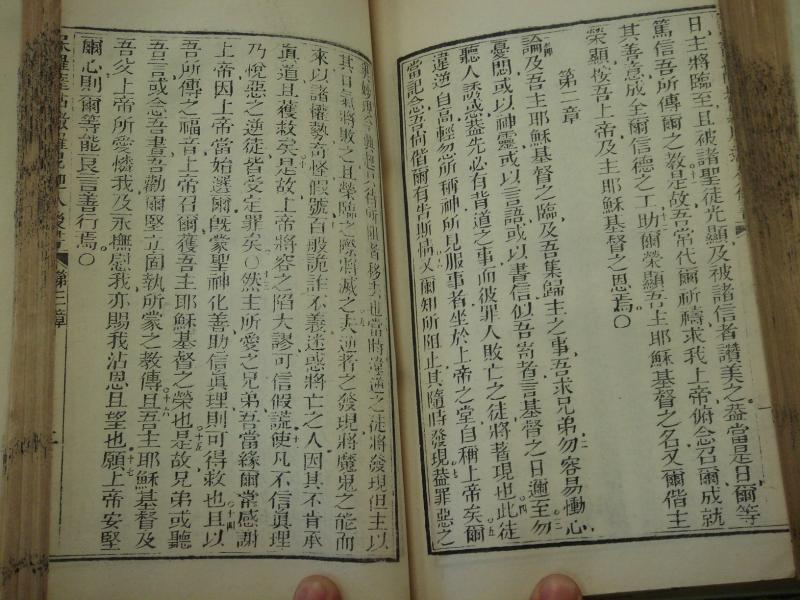 日主將臨至且被諸聖徒光顯及被諸信者讚美之葢當是日爾等
篤信吾所傳爾之教十一是故吾常代爾祈禱求我上帝俯念召爾成就
其善意成全爾信德之工十二助爾榮顯吾主耶穌基督之名又爾偕主
榮顯按吾上帝及主耶穌基督之恩焉〇
第二章
論及吾主耶穌基督之臨及吾集歸主之事吾求兄弟二勿容易慟心
憂悶或以神靈或以言語或以書信似吾寄者言基督之日邇至三勿
聽人誘惑葢先必有背道之事而彼罪人敗亡之徒將著現也四此徒
違逆自高輕忽所稱神所見服事者坐於上帝之堂自稱上帝矣五爾
當記念吾尚偕爾有告斯情六又爾知所阻止其隨時發現七葢罪惡之
今 阻者移去也八當時 逆之徒將發現但主以
其口氣將敗之且榮臨之 將滅之九夫逆者之發現將魔鬼之能而
來以諸權勢奇怪假號十百般詭誰不義迷惑將亡之人因其不肯承
真道且獲救矣十一是故上帝將容之陷大謬可信假謊十二使凡不信真理
乃悅惡之逆徒皆受定罪矣〇十三然主所愛之兄弟吾當緣爾常感謝
上帝因上帝當始選爾既蒙聖神化善助信真理則可得救也十四且以
吾所傳之福音上帝召爾獲吾主耶穌基督之榮也十五是故兄弟或聽
吾言或念吾書吾勸爾堅立固執所蒙之教傳十六且吾主耶穌基督及
吾父上帝所愛憐我及永撫慰我亦賜我沾恩且望也十七願上帝安堅
爾心則爾等能艮言善行焉〇
第三章